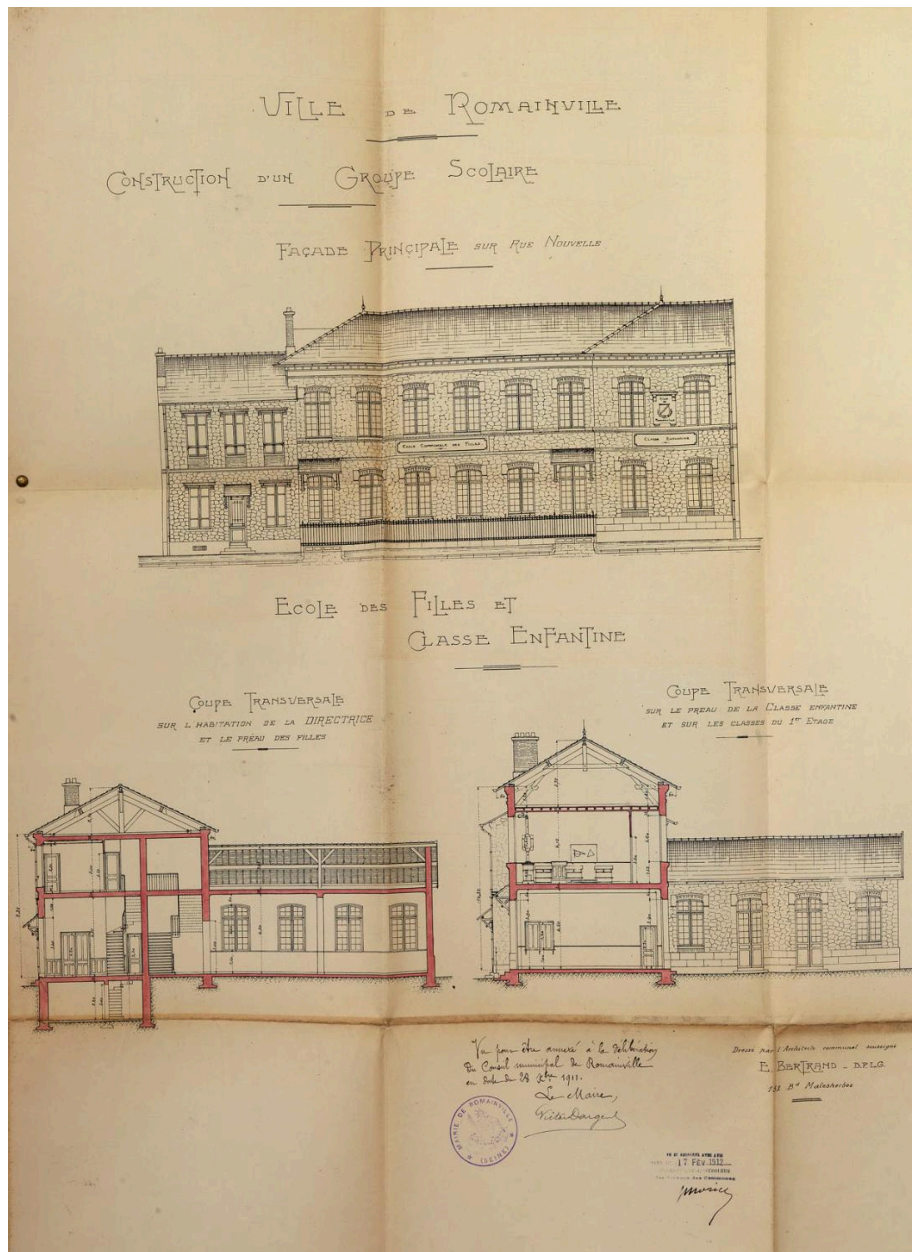 VILLE DE ROMAINVILLE
CONSTRUCTION D'UN GROUPE SCOLAIRE
FAÇADE PRINÇIPALE SUR RUE NOUVELLE
ECOLE COMMUNALE DES FILLES
CLASSE ENFANTINE
ECOLE DES FILLES ET
CLASSE ENFANTINE
COUPE TRANSVERSALE
SUR L'HABITATION DE LA DIRECTRICE
ET LE PRÉAU DES FILLES
COUPE TRANSVERSALE
SUR LE PRÉAU DE LA CLASSE ENFANTINE
ET SUR LES CLASSES DU 1ER ETAGE
Vu pour être annexé à la délibération
du Conseil municipal de Romainville
en date du 28 Xbre 1911.
Le Maire,
Victor Dargent
MAIRIE DE ROMAINVILLE (SEINE)
Dressé par l'Architecte communal soussigné
E. BERTRAND - D.P.L.G.
132 Bd Malesherbes
17 FEV 1912